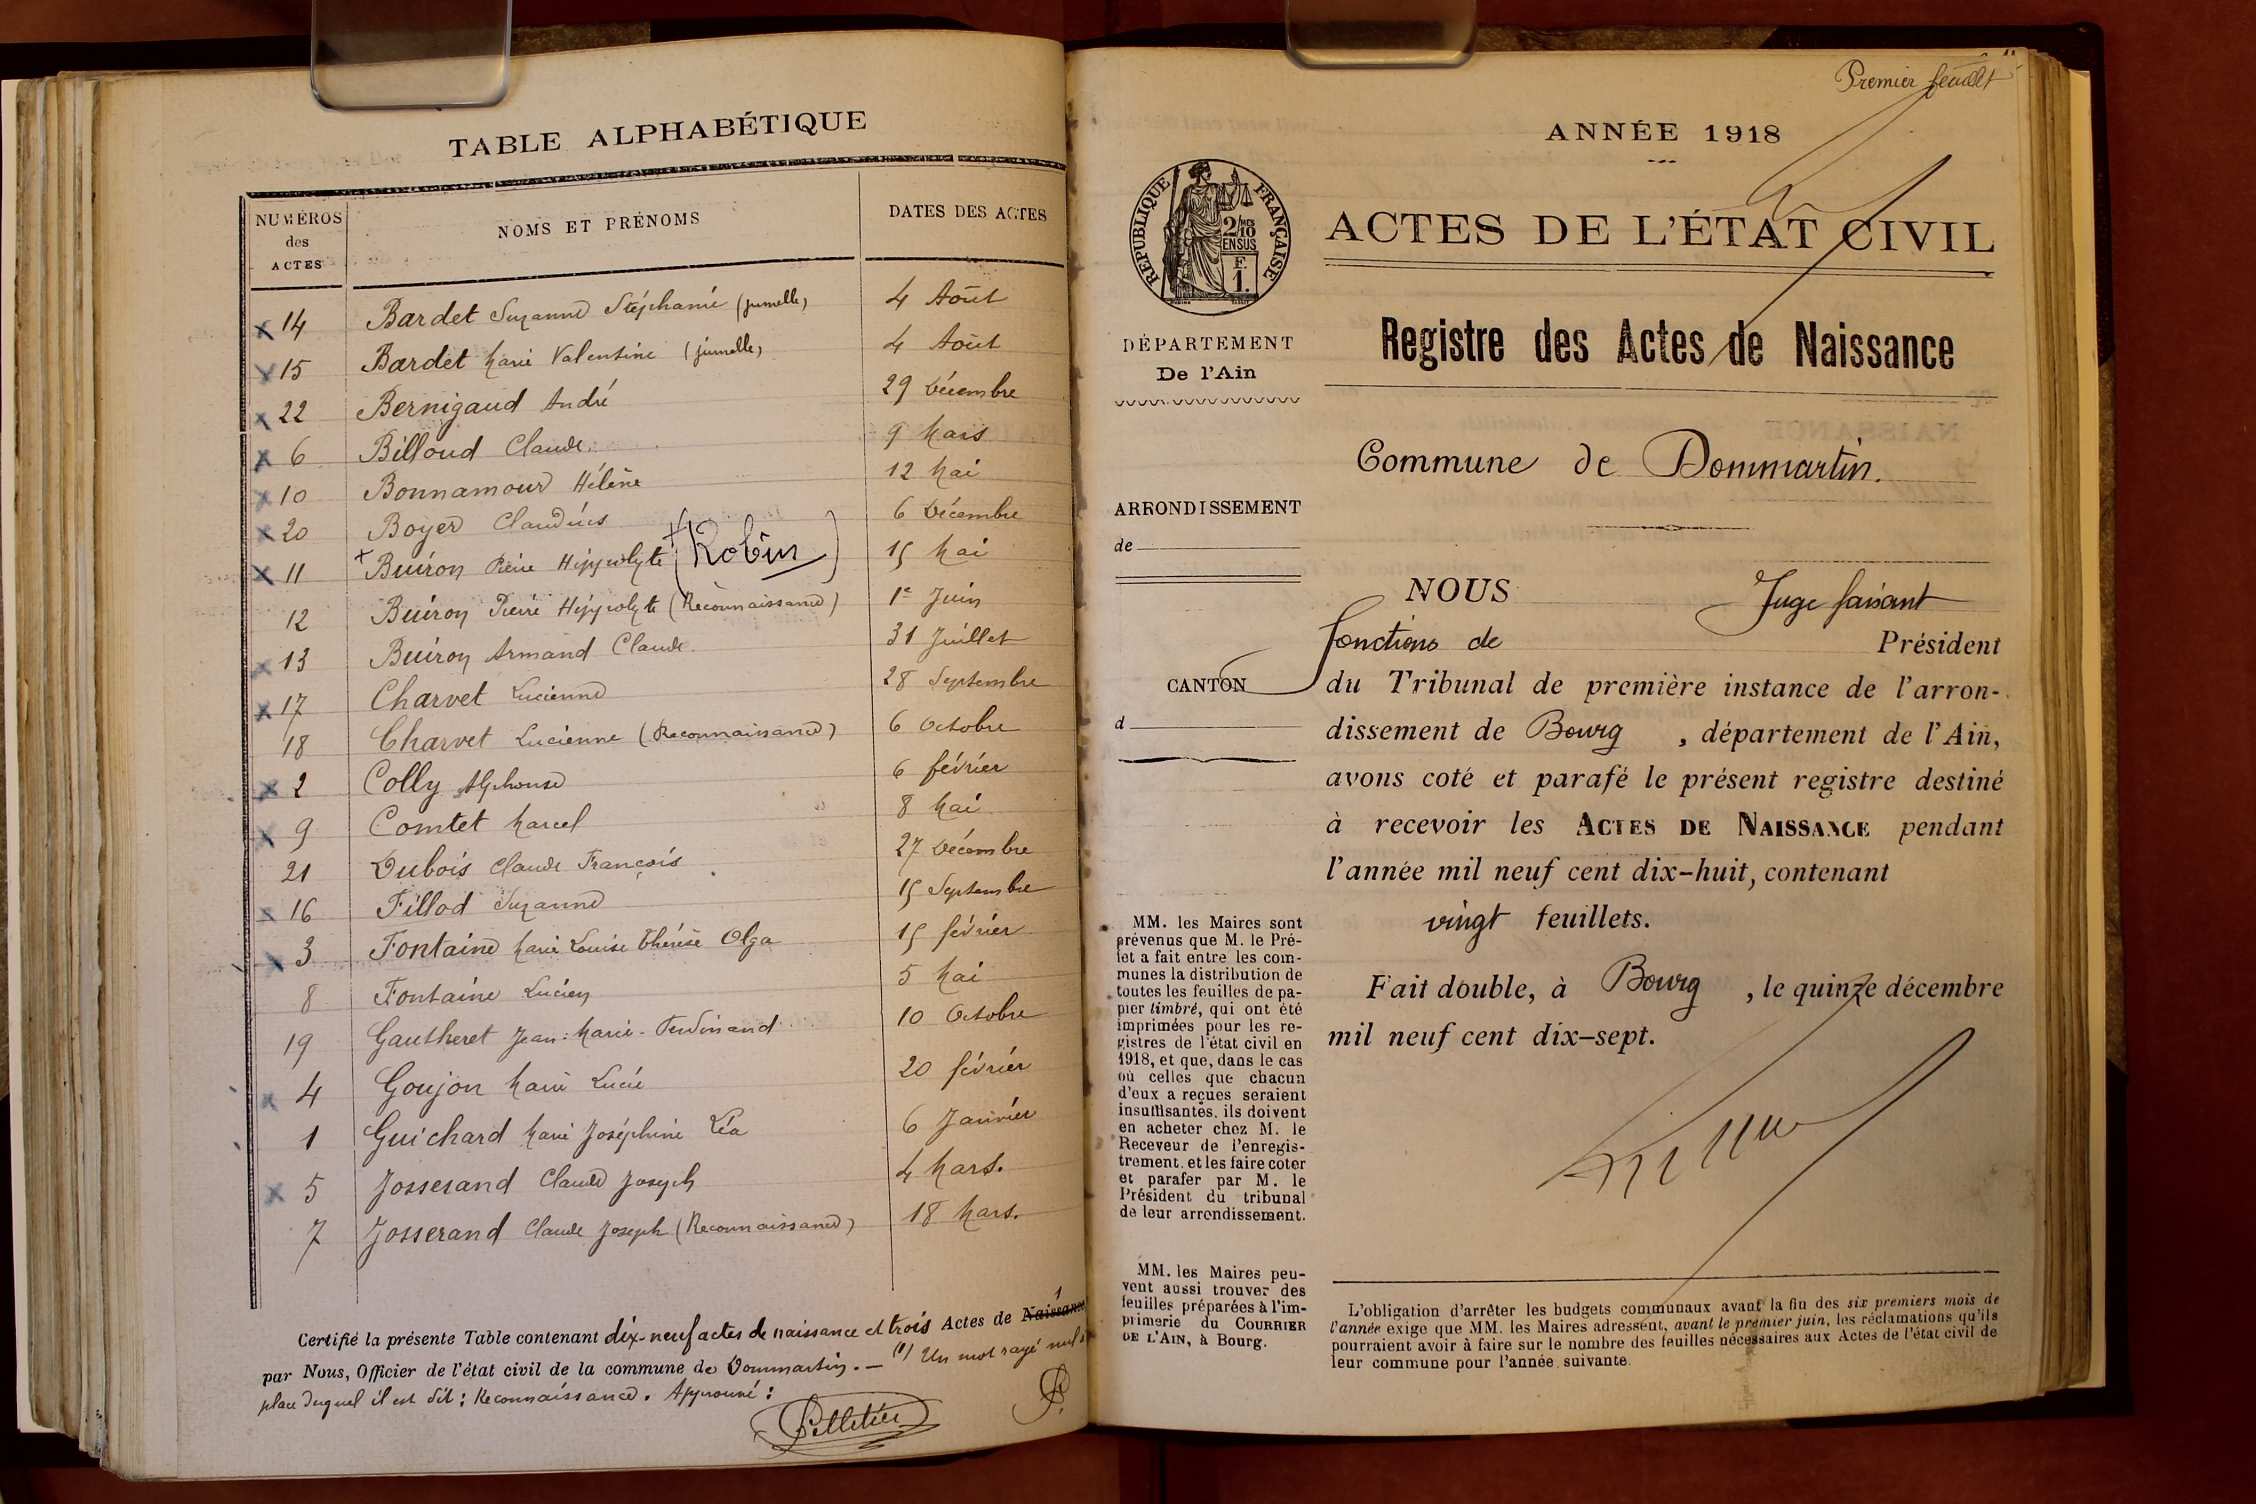 TABLE ALPHABÉTIQUE
NUMÉROS des ACTES NOMS ET PRÉNOMS DATES DES ACTES
14 Bardet Suzanne Stéphanie (jumelle) 4 Août
15 Bardet Marie Valentine (jumelle) 4 Août
22 Bernigaud André 29 Décembre
6 Billoud Claude 9 Mars
10 Bonnamour Hélène 12 Mai
20 Boyer Claudius 6 Décembre
11 + Buiron Pierre Hippolyte + (Robin) 15 Mai
12 Buiron Pierre Hippolyte (Reconnaissance) 1e Juin
13 Buiron Armand Claude 31 Juillet
17 Charvet Lucienne 28 Septembre
18 Charvet Lucienne (Reconnaissance) 6 Octobre
2 Colly Alphonse 6 février
9 Comtet Marcel 8 Mai
21 Dubois Claude François 27 Décembre
16 Fillod Suzanne 15 Septembre
3 Fontaine Marie Louise Thérèse Olga 15 février
8 Fontaine Lucien 5 Mai
19 Gautheret Jean-Marie-Ferdinand 10 Octobre
4 Goujon Marie Lucie 20 février
1 Guichard Marie Joséphine Léa 6 Janvier
5 Josserand Claude Joseph 4 Mars.
7 Josserand Claude Joseph (Reconnaissance) 18 Mars.
Certifié la présente Table contenant dix-neuf actes de naissance et trois Actes de Naissance 1
par Nous, Officier de l'état civil de la commune de Dommartin. — (1) Un mot rayé nul
place duquel il est dit : Reconnaissance. Approuvé :
Pelletier
P.
Premier feuillet
ANNÉE 1918
RÉPUBLIQUE FRANÇAISE
2/10 MES
EN SUS
F.
1.
ACTES DE L'ÉTAT CIVIL
DÉPARTEMENT
De l'Ain
Registre des Actes de Naissance
Commune de Dommartin.
ARRONDISSEMENT
de
CANTON
d
NOUS Juge faisant
fonctions de Président
du Tribunal de première instance de l'arron-
dissement de Bourg , département de l'Ain,
avons coté et parafé le présent registre destiné
à recevoir les ACTES DE NAISSANCE pendant
l'année mil neuf cent dix-huit, contenant
vingt feuillets.
Fait double, à Bourg , le quinze décembre
mil neuf cent dix-sept.
MM. les Maires sont
prévenus que M. le Pré-
fet a fait entre les com-
munes la distribution de
toutes les feuilles de pa-
pier timbré, qui ont été
imprimées pour les re-
gistres de l'état civil en
1918, et que, dans le cas
où celles que chacun
d'eux a reçues seraient
insuffisantes, ils doivent
en acheter chez M. le
Receveur de l'enregis-
trement, et les faire coter
et parafer par M. le
Président du tribunal
de leur arrondissement.
MM. les Maires peu-
vent aussi trouver des
feuilles préparées à l'im-
primerie du COURRIER
DE L'AIN, à Bourg.
L'obligation d'arrêter les budgets communaux avant la fin des six premiers mois de
l'année exige que MM. les Maires adressent, avant le premier juin, les réclamations qu'ils
pourraient avoir à faire sur le nombre des feuilles nécessaires aux Actes de l'état civil de
leur commune pour l'année suivante.